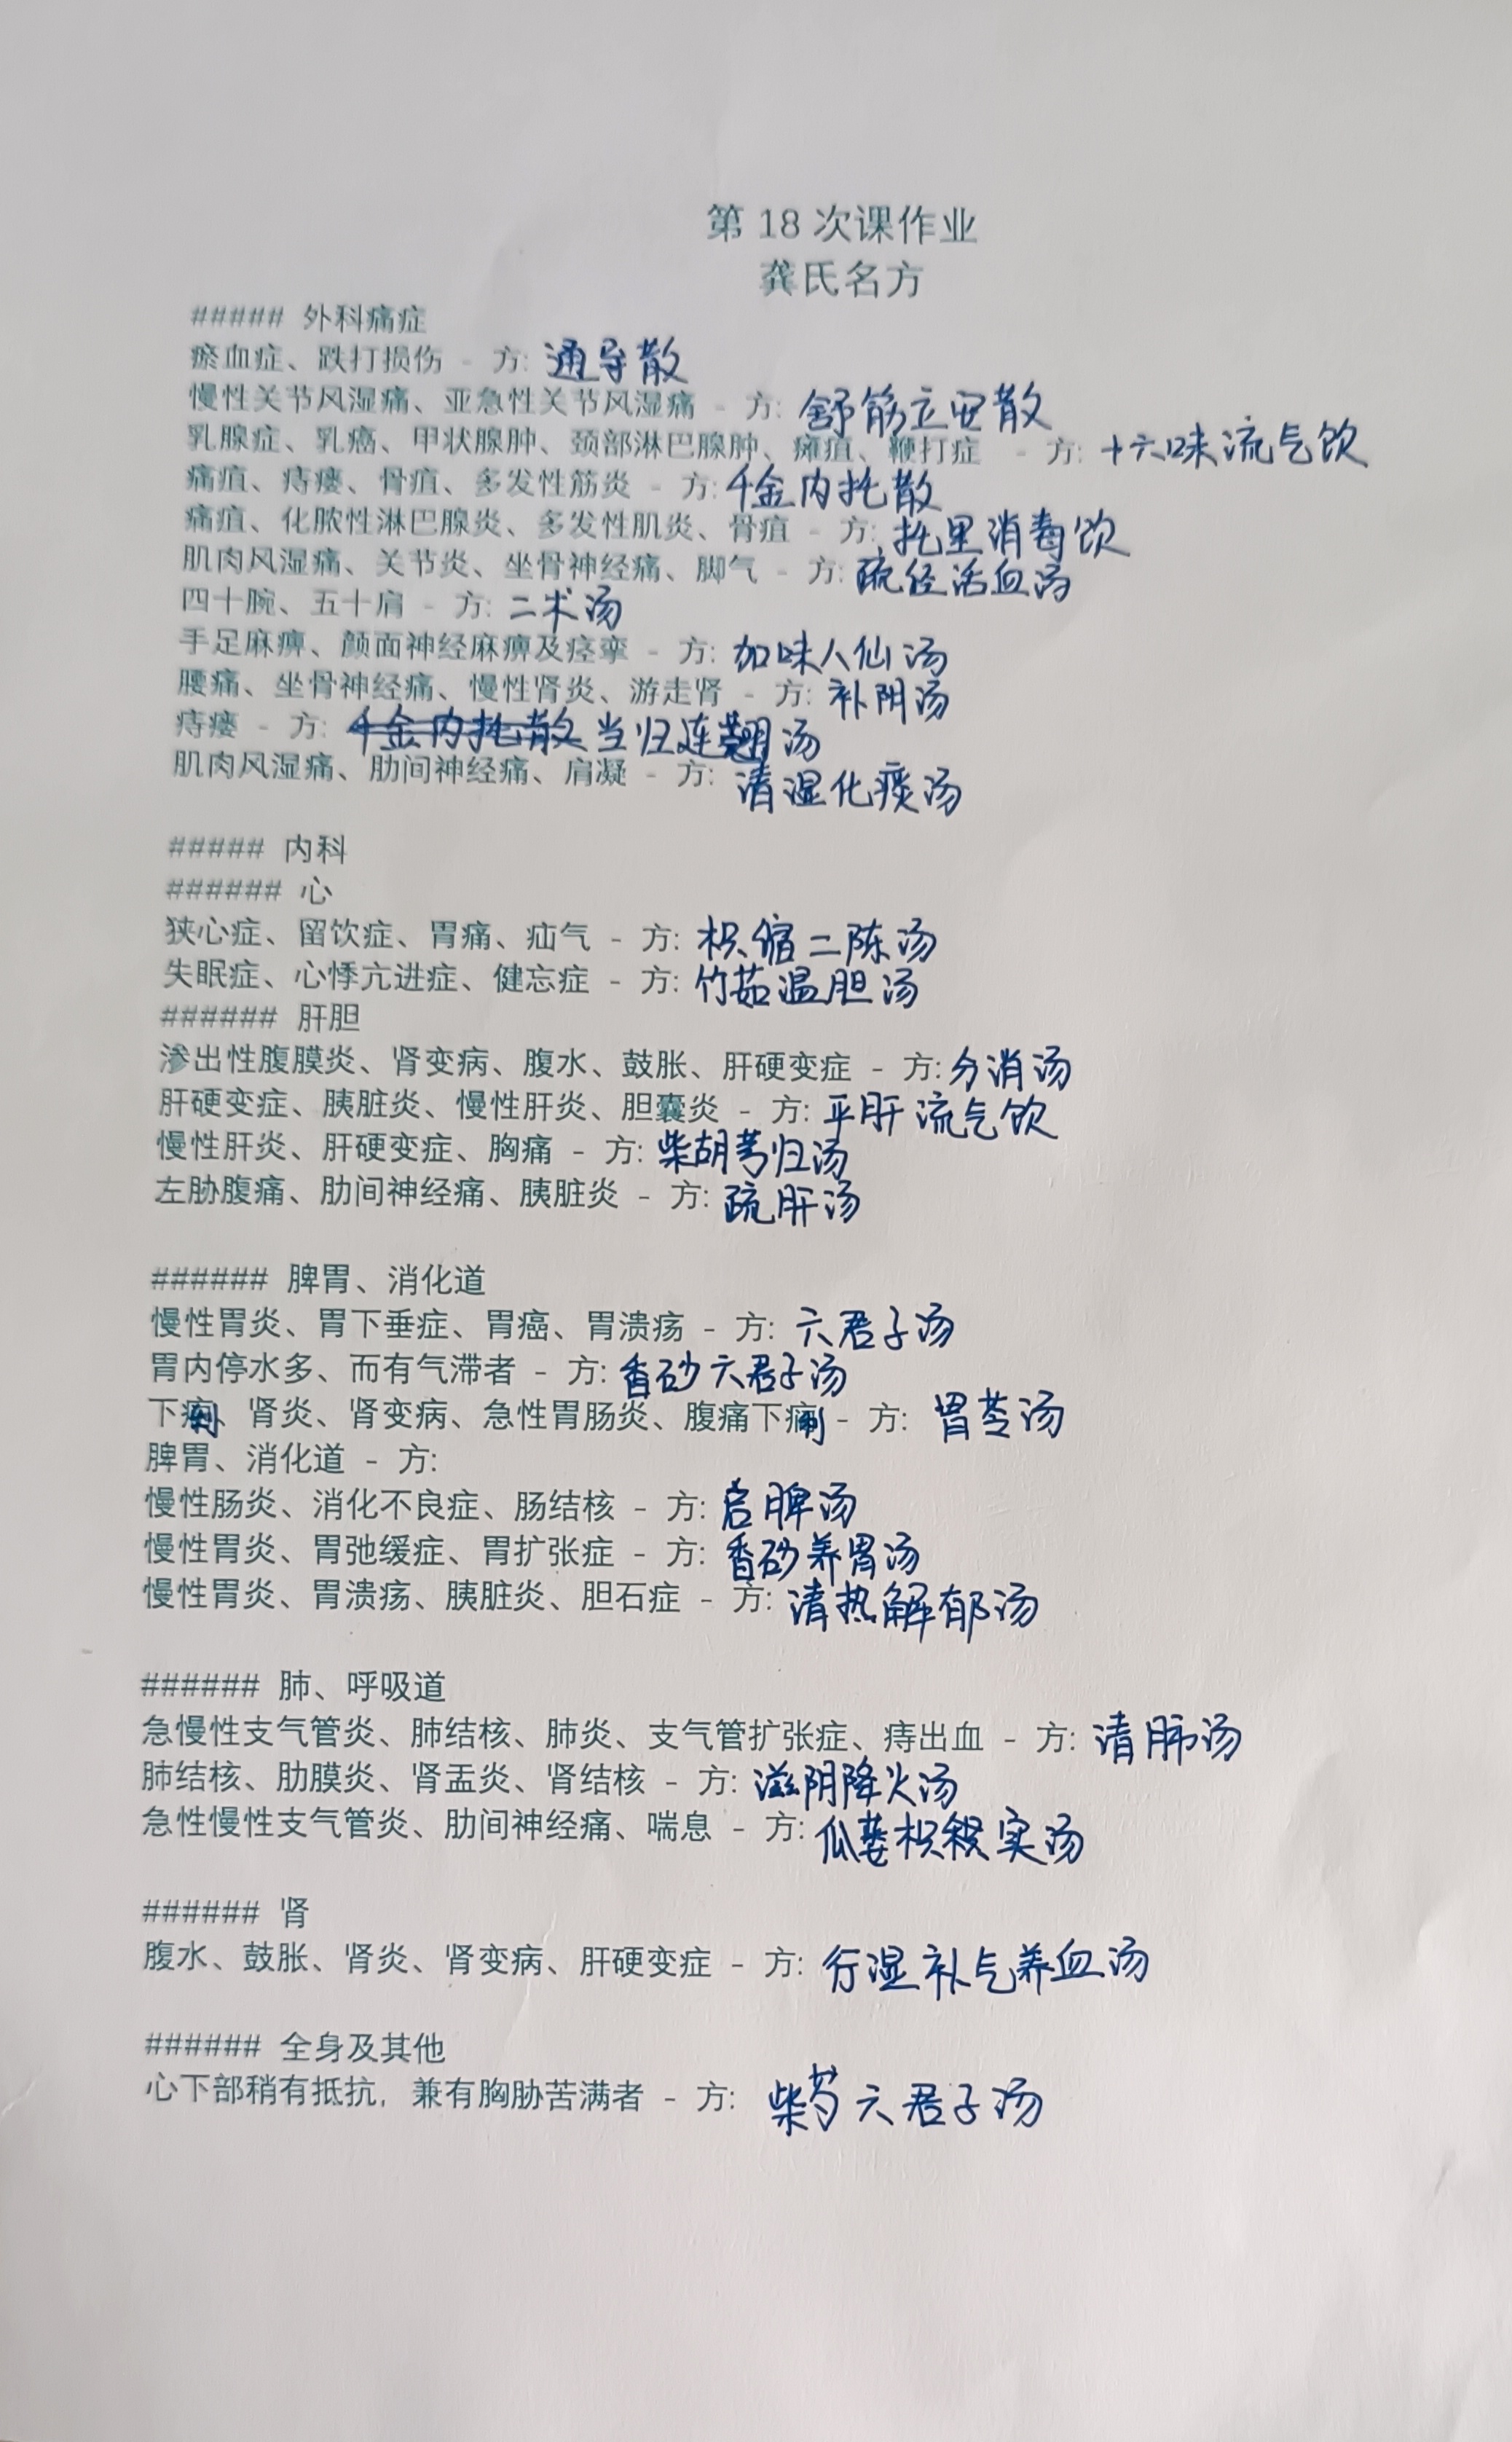 第 18 次课作业
龚氏名方
##### 外科痛症
瘀血症、跌打损伤 - 方: 通导散
慢性关节风湿痛、亚急性关节风湿痛 - 方: 舒筋立安散
乳腺症、乳癌、甲状腺肿、颈部淋巴腺肿、瘫疽、鞭打症 - 方: 十六味流气饮
痛疽、痔瘘、骨疽、多发性筋炎 - 方: 千金内托散
痛疽、化脓性淋巴腺炎、多发性肌炎、骨疽 - 方: 托里消毒饮
肌肉风湿痛、关节炎、坐骨神经痛、脚气 - 方: 疏经活血汤
四十腕、五十肩 - 方: 二术汤
手足麻痹、颜面神经麻痹及痉挛 - 方: 加味八仙汤
腰痛、坐骨神经痛、慢性肾炎、游走肾 - 方: 补阴汤
痔瘘 - 方: 千金内托散 当归连翘汤
肌肉风湿痛、肋间神经痛、肩凝 - 方: 清湿化痰汤
##### 内科
###### 心
狭心症、留饮症、胃痛、疝气 - 方: 枳缩二陈汤
失眠症、心悸亢进症、健忘症 - 方: 竹茹温胆汤
###### 肝胆
渗出性腹膜炎、肾变病、腹水、鼓胀、肝硬变症 - 方: 分消汤
肝硬变症、胰脏炎、慢性肝炎、胆囊炎 - 方: 平肝流气饮
慢性肝炎、肝硬变症、胸痛 - 方: 柴胡芎归汤
左胁腹痛、肋间神经痛、胰脏炎 - 方: 疏肝汤
###### 脾胃、消化道
慢性胃炎、胃下垂症、胃癌、胃溃疡 - 方: 六君子汤
胃内停水多、而有气滞者 - 方: 香砂六君子汤
下痢、肾炎、肾变病、急性胃肠炎、腹痛下痢 - 方: 胃苓汤
脾胃、消化道 - 方:
慢性肠炎、消化不良症、肠结核 - 方: 启脾汤
慢性胃炎、胃弛缓症、胃扩张症 - 方: 香砂养胃汤
慢性胃炎、胃溃疡、胰脏炎、胆石症 - 方: 清热解郁汤
###### 肺、呼吸道
急慢性支气管炎、肺结核、肺炎、支气管扩张症、痔出血 - 方: 清肺汤
肺结核、肋膜炎、肾盂炎、肾结核 - 方: 滋阴降火汤
急性慢性支气管炎、肋间神经痛、喘息 - 方: 瓜蒌枳实汤
###### 肾
腹水、鼓胀、肾炎、肾变病、肝硬变症 - 方: 行湿补气养血汤
###### 全身及其他
心下部稍有抵抗, 兼有胸胁苦满者 - 方: 柴芍六君子汤